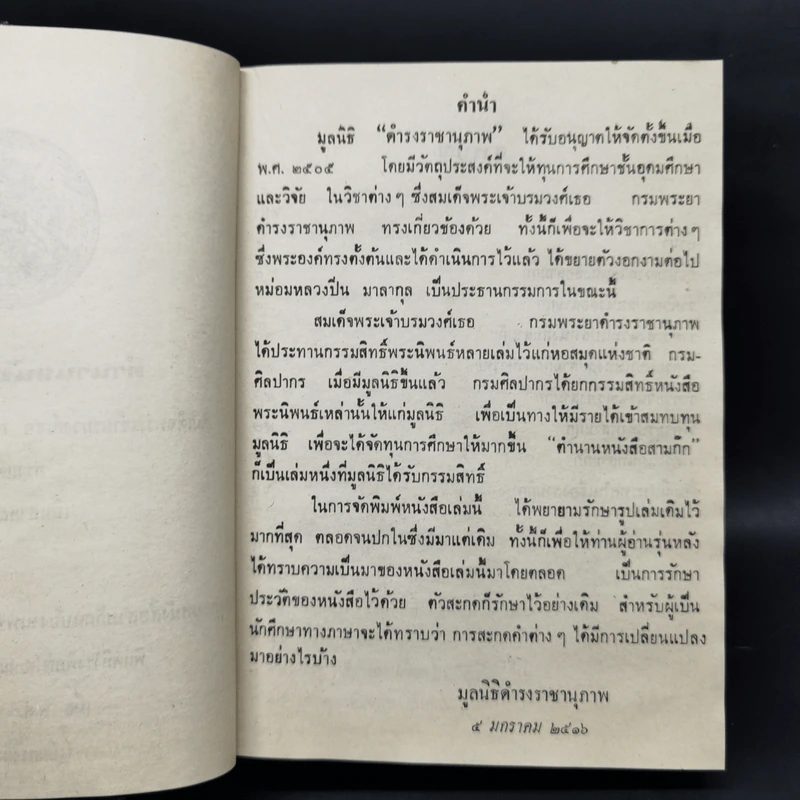 คำนำ
มูลนิธิ "ดำรงราชานุภาพ" ได้รับอนุญาตให้จัดตั้งขึ้นเมื่อ
พ.ศ. ๒๕๐๕ โดยมีวัตถุประสงค์ที่จะให้ทุนการศึกษาชั้นอุดมศึกษา
และวิจัย ในวิชาต่าง ๆ ซึ่งสมเด็จพระเจ้าบรมวงศ์เธอ กรมพระยา
ดำรงราชานุภาพ ทรงเกี่ยวข้องด้วย ทั้งนี้ก็เพื่อจะให้วิชาการต่าง ๆ
ซึ่งพระองค์ทรงตั้งต้นและได้ดำเนินการไว้แล้ว ได้ขยายตัวงอกงามต่อไป
หม่อมหลวงปิ่น มาลากุล เป็นประธานกรรมการในขณะนี้
สมเด็จพระเจ้าบรมวงศ์เธอ กรมพระยาดำรงราชานุภาพ
ได้ประทานกรรมสิทธิ์พระนิพนธ์หลายเล่มไว้แก่หอสมุดแห่งชาติ กรม-
ศิลปากร เมื่อมีมูลนิธิขึ้นแล้ว กรมศิลปากรได้ยกกรรมสิทธิ์หนังสือ
พระนิพนธ์เหล่านั้นให้แก่มูลนิธิ เพื่อเป็นทางให้มีรายได้เข้าสมทบทุน
มูลนิธิ เพื่อจะได้จัดทุนการศึกษาให้มากขึ้น "ตำนานหนังสือสามก๊ก"
ก็เป็นเล่มหนึ่งที่มูลนิธิได้รับกรรมสิทธิ์
ในการจัดพิมพ์หนังสือเล่มนี้ ได้พยายามรักษารูปเล่มเดิมไว้
มากที่สุด ตลอดจนปกในซึ่งมีมาแต่เดิม ทั้งนี้ก็เพื่อให้ท่านผู้อ่านรุ่นหลัง
ได้ทราบความเป็นมาของหนังสือเล่มนี้มาโดยตลอด เป็นการรักษา
ประวัติของหนังสือไว้ด้วย ตัวสะกดก็รักษาไว้อย่างเดิม สำหรับผู้เป็น
นักศึกษาทางภาษาจะได้ทราบว่า การสะกดคำต่าง ๆ ได้มีการเปลี่ยนแปลง
มาอย่างไรบ้าง
มูลนิธิดำรงราชานุภาพ
๕ มกราคม ๒๕๑๖